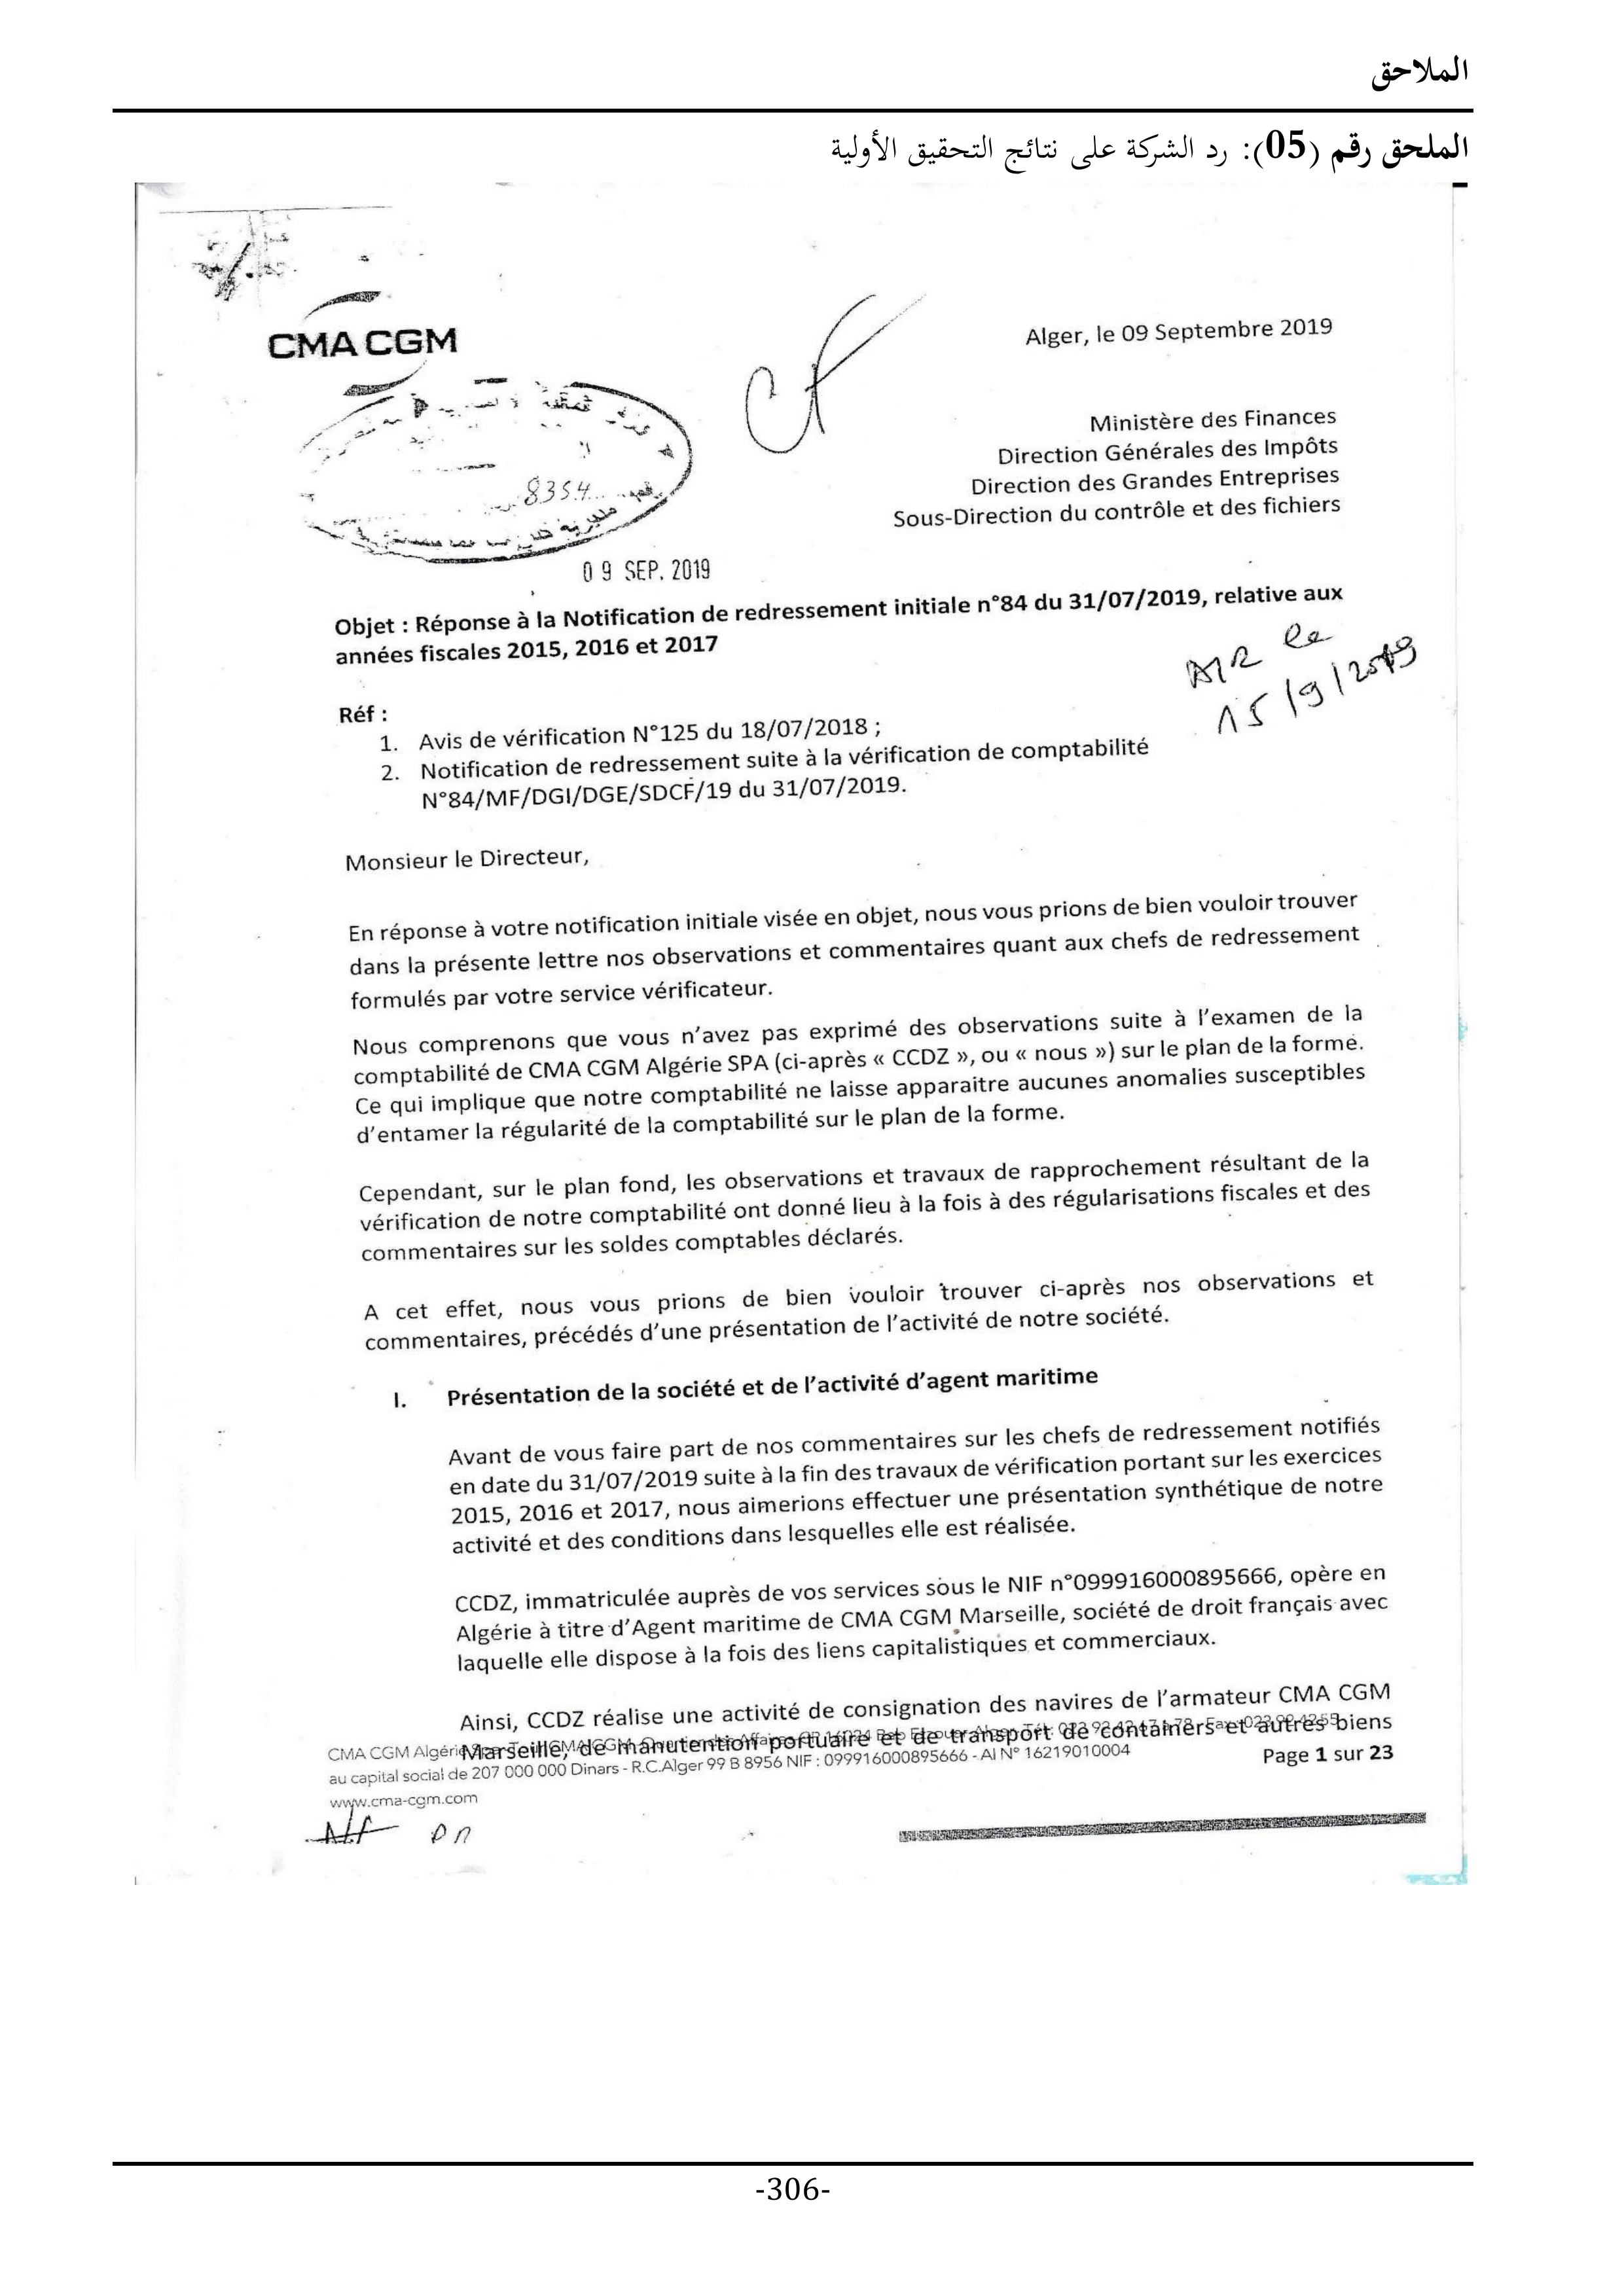 الملاحق
الملحق رقم (05): رد الشركة على نتائج التحقيق الأولية
CMA CGM
Alger, le 09 Septembre 2019
Ministère des Finances
Direction Générales des Impôts
Direction des Grandes Entreprises
Sous-Direction du contrôle et des fichiers
8354
09 SEP. 2019
Objet : Réponse à la Notification de redressement initiale n°84 du 31/07/2019, relative aux
années fiscales 2015, 2016 et 2017
15/9/2019
Réf :
1. Avis de vérification N°125 du 18/07/2018 ;
2. Notification de redressement suite à la vérification de comptabilité
N°84/MF/DGI/DGE/SDCF/19 du 31/07/2019.
Monsieur le Directeur,
En réponse à votre notification initiale visée en objet, nous vous prions de bien vouloir trouver
dans la présente lettre nos observations et commentaires quant aux chefs de redressement
formulés par votre service vérificateur.
Nous comprenons que vous n'avez pas exprimé des observations suite à l'examen de la
comptabilité de CMA CGM Algérie SPA (ci-après « CCDZ », ou « nous ») sur le plan de la forme.
Ce qui implique que notre comptabilité ne laisse apparaitre aucunes anomalies susceptibles
d'entamer la régularité de la comptabilité sur le plan de la forme.
Cependant, sur le plan fond, les observations et travaux de rapprochement résultant de la
vérification de notre comptabilité ont donné lieu à la fois à des régularisations fiscales et des
commentaires sur les soldes comptables déclarés.
A cet effet, nous vous prions de bien vouloir trouver ci-après nos observations et
commentaires, précédés d'une présentation de l'activité de notre société.
I. Présentation de la société et de l'activité d'agent maritime
Avant de vous faire part de nos commentaires sur les chefs de redressement notifiés
en date du 31/07/2019 suite à la fin des travaux de vérification portant sur les exercices
2015, 2016 et 2017, nous aimerions effectuer une présentation synthétique de notre
activité et des conditions dans lesquelles elle est réalisée.
CCDZ, immatriculée auprès de vos services sous le NIF n°099916000895666, opère en
Algérie à titre d'Agent maritime de CMA CGM Marseille, société de droit français avec
laquelle elle dispose à la fois des liens capitalistiques et commerciaux.
Ainsi, CCDZ réalise une activité de consignation des navires de l'armateur CMA CGM
Marseille, de manutention portuaire et de transport de containers et autres biens
CMA CGM Algérie
au capital social de 207 000 000 Dinars - R.C.Alger 99 B 8956 NIF : 099916000895666 - AI N° 16219010004
Page 1 sur 23
www.cma-cgm.com
-306-